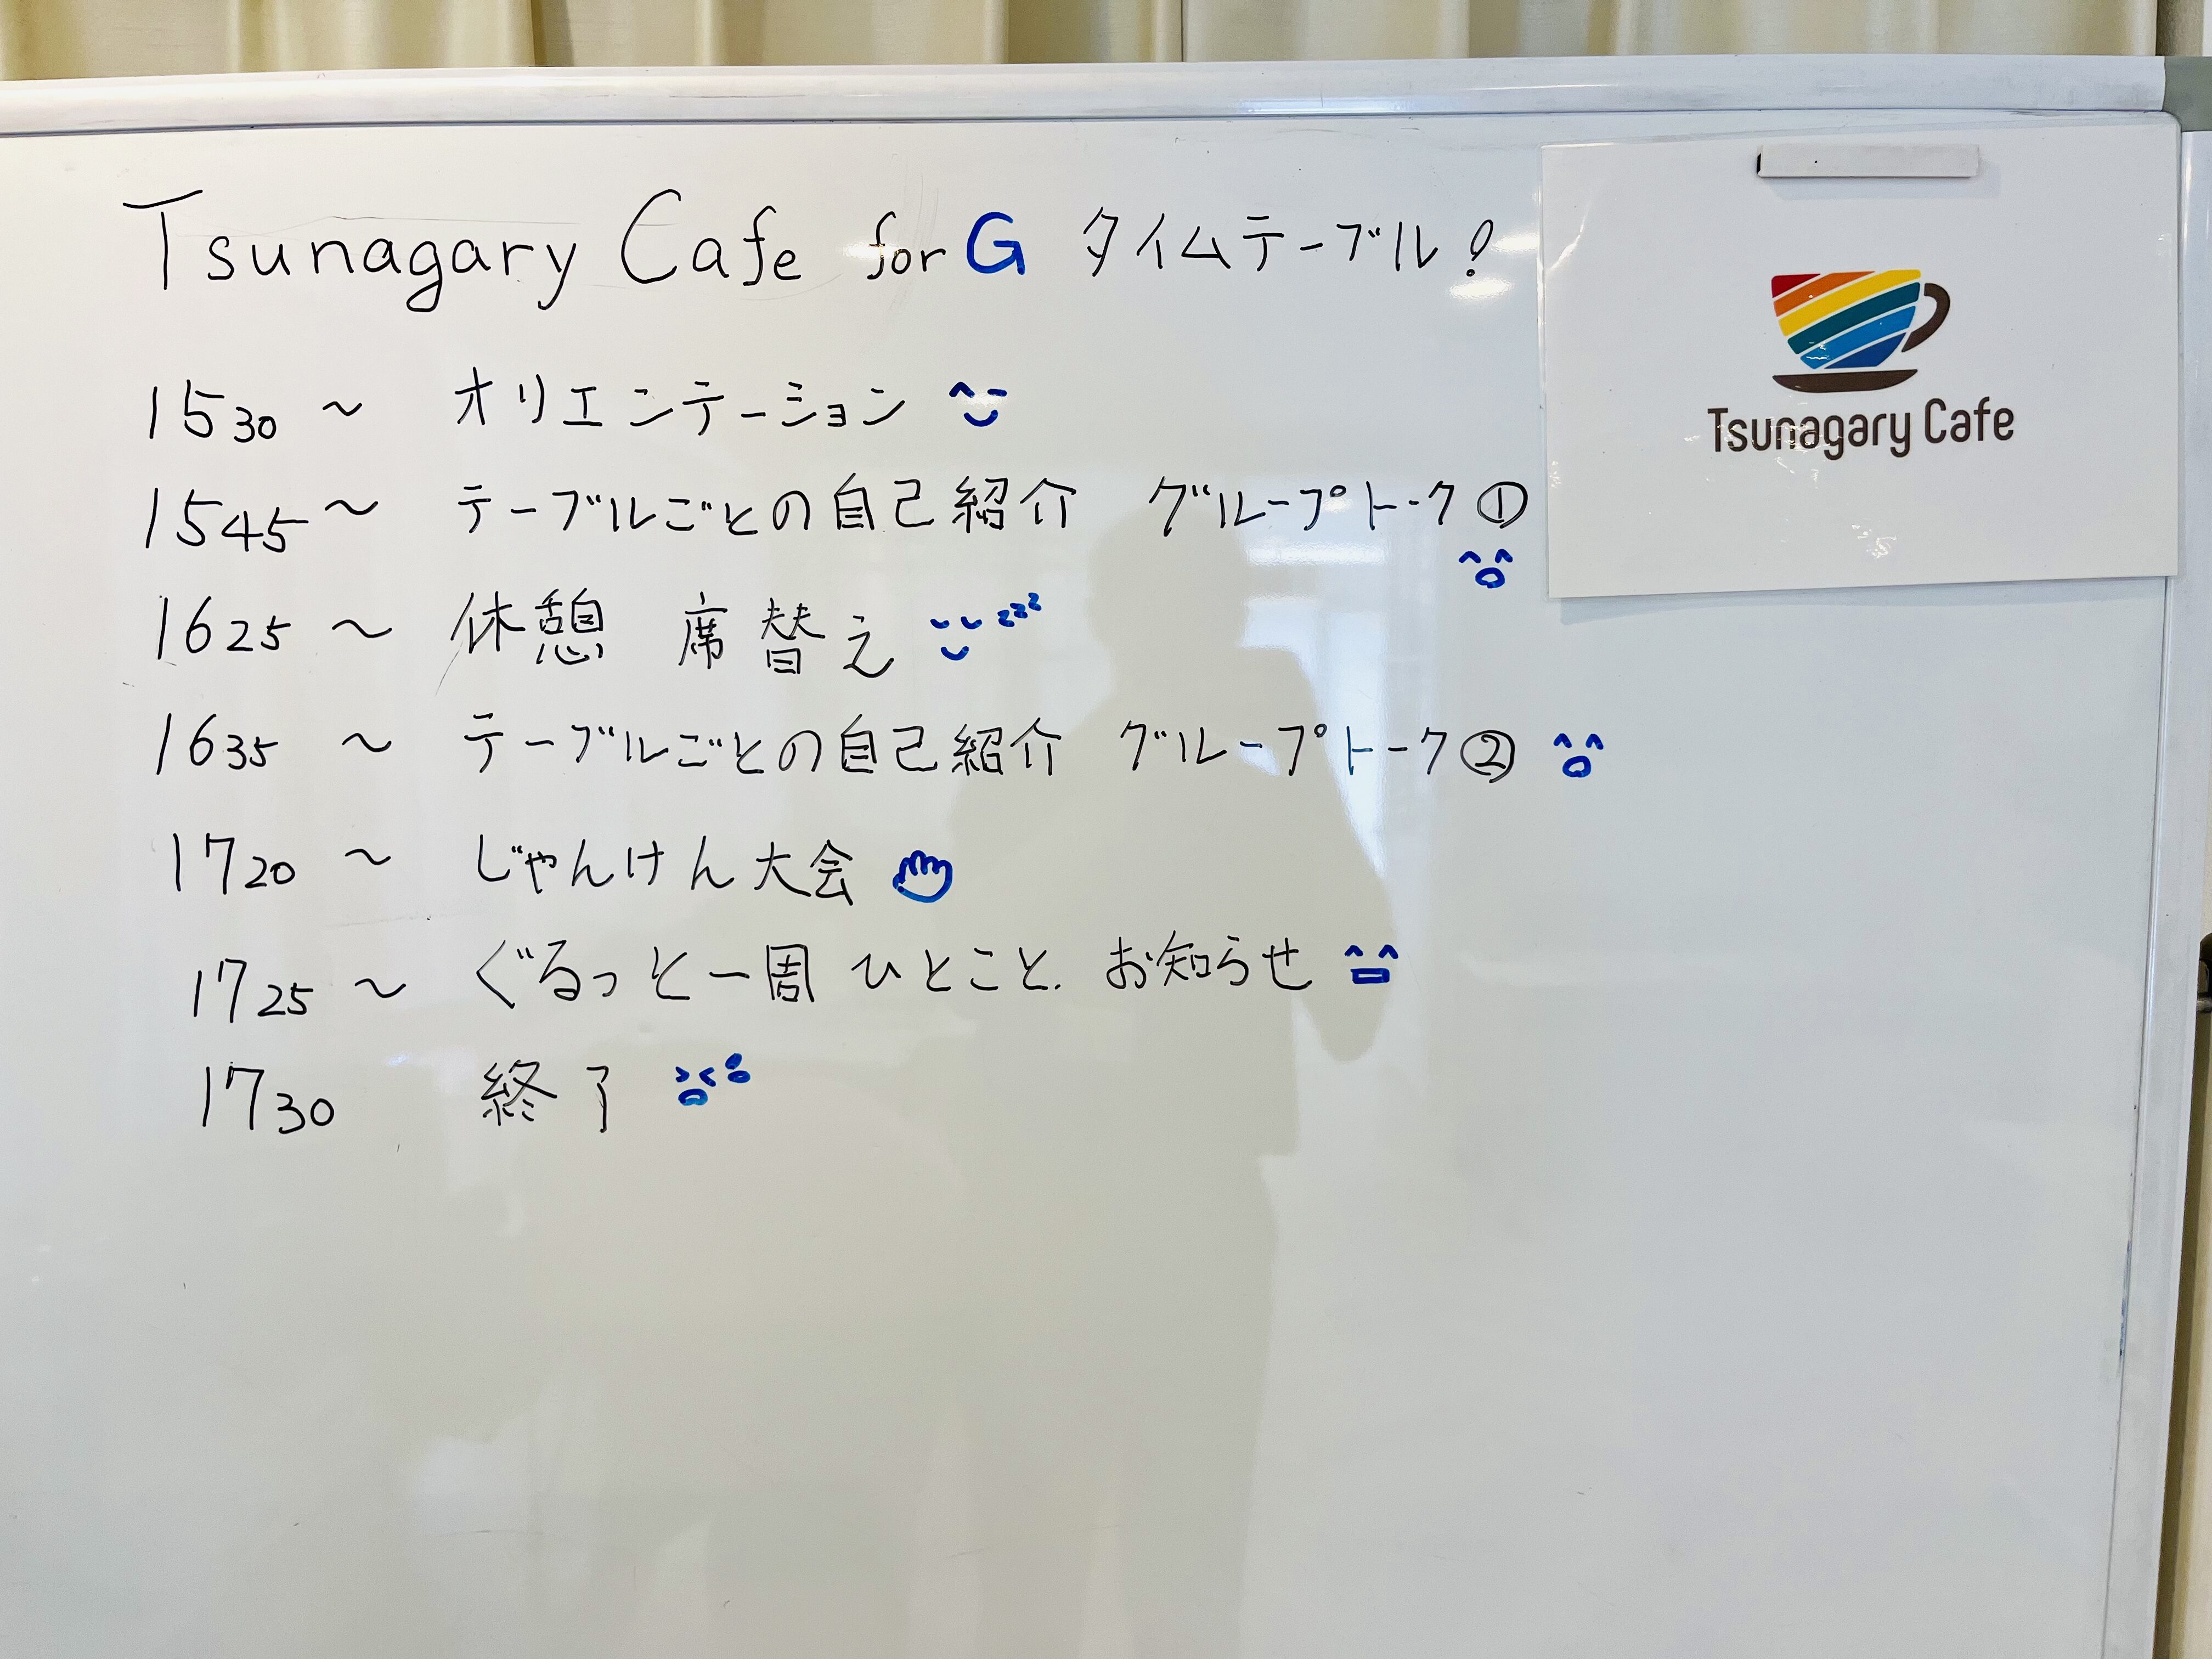 Tsunagary Cafe for G タイムテーブル!
1530 ~ オリエンテーション
1545 ~ テーブルごとの自己紹介 グループトーク①
1625 ~ 休憩 席替え zzz
1635 ~ テーブルごとの自己紹介 グループトーク②
1720 ~ じゃんけん大会
1725 ~ ぐるっと一周 ひとこと. お知らせ
1730 終了
Tsunagary Cafe